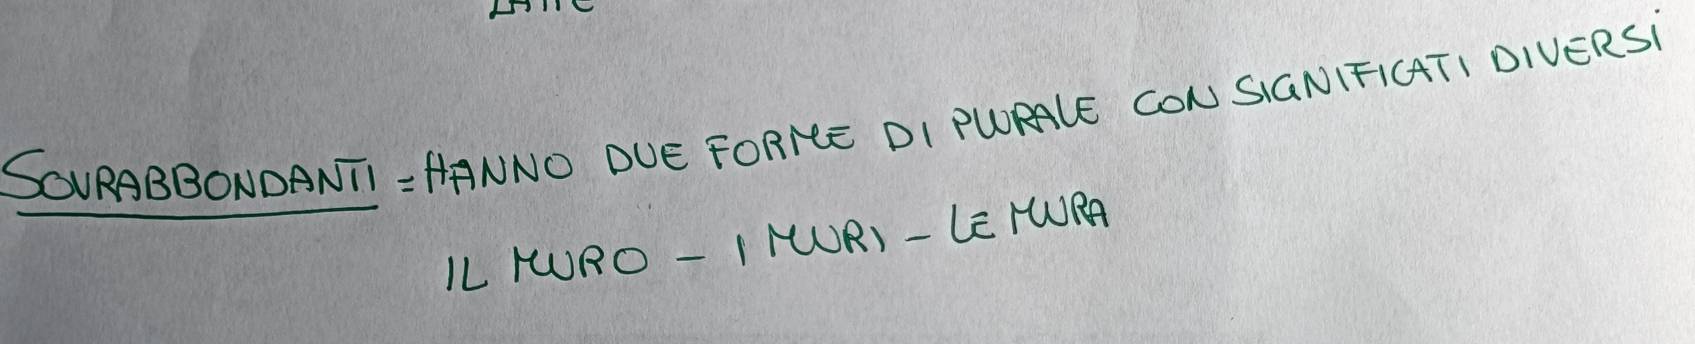 SOVRABBONDANTI = HANNO DUE FORME DI PLURALE CON SIGNIFICATI DIVERSI
IL MURO - I MURI - LE MURA